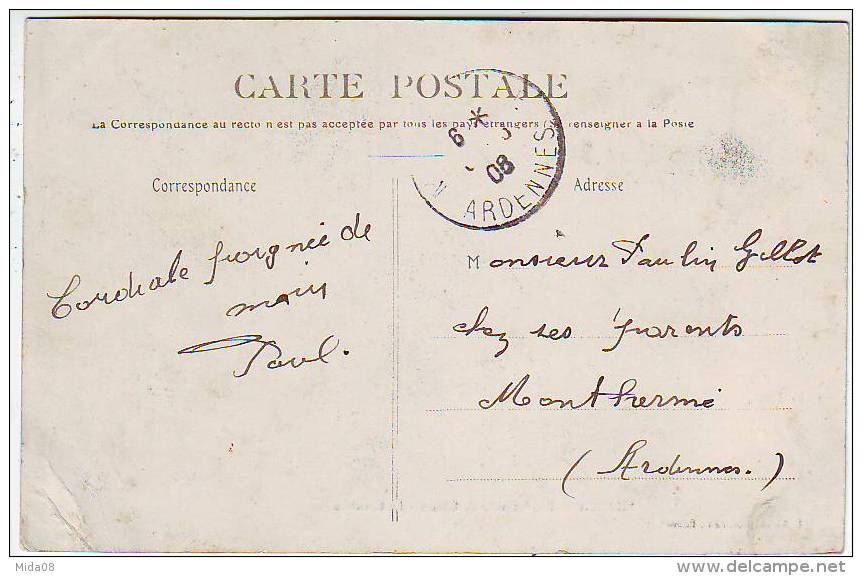 CARTE POSTALE
La Correspondance au recto n'est pas acceptée par tous les pays étrangers (Se renseigner à la Poste
6 *
08
ARDENNES
Correspondance
Adresse
Cordiale poignée de
main
Paul.
Monsieur Paulin Gillot
chez ses parents
Monthermé
(Ardennes.)
Mida08
delcampe.net